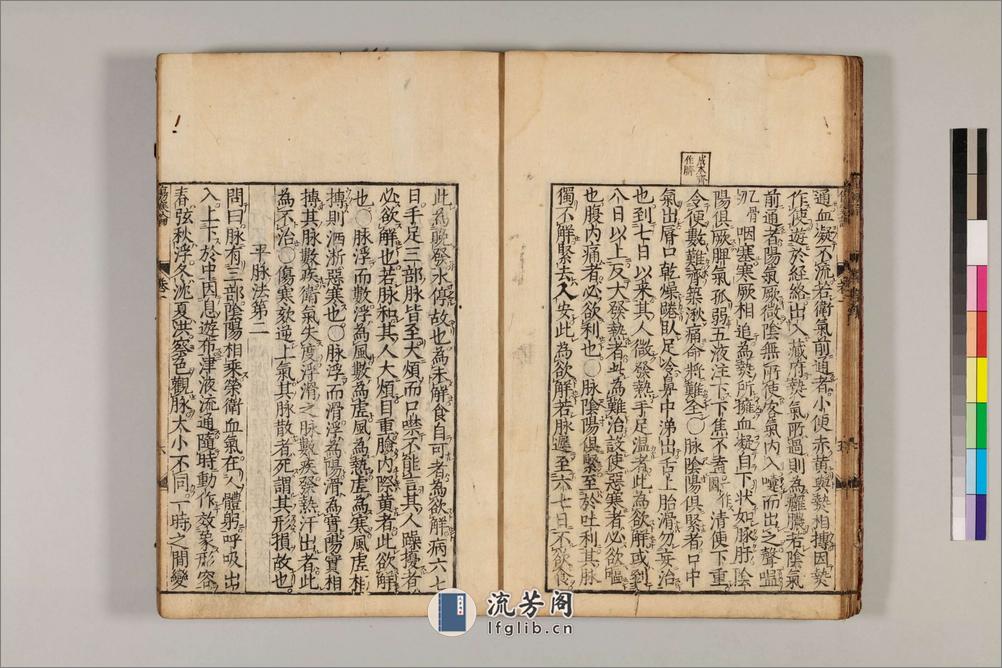 通血凝不流若衛氣前通者小便赤黃與熱相搏因熱
作使遊於經絡出入藏府熱氣所過則為癰膿若陰氣
前通者陽氣厥微陰無所使客氣內入嚏而出之聲嗢
咽塞寒厥相追為熱所擁血凝自下狀如豚肝陰
陽俱厥脾氣孤弱五液注下下焦不 清便下重
令便數難齊築湫痛命將難全○脉陰陽俱緊者口中
氣出唇口乾燥踡臥足冷鼻中涕出舌上胎滑勿妄治
也到七日以來其人微發熱手足溫者此為欲解或到
八日以上反大發熱者此為難治設使惡寒者必欲嘔
也腹內痛者必欲利也○脉陰陽俱緊至於吐利其脉
獨不解緊去人安此為欲解若脉遲至六七日不欲食
成本齊
作臍
此為晚發水停故也為未解食自可者為欲解病六七
日手足三部脉皆至大煩而口噤不能言其人躁擾者
必欲解也若脉和其人大煩目重瞼內際黃者此欲解
也○脉浮而數浮為風數為虛風為熱虛為寒風虛相
搏則洒淅惡寒也○脉浮而滑浮為陽滑為實陽實相
搏其脉數疾衛氣失度浮滑之脉數疾發熱汗出者此
為不治○傷寒欬逆上氣其脉散者死謂其形損故也
平脉法第二
問曰脉有三部陰陽相乘榮衛血氣在人體躬呼吸出
入上下於中因息遊布津液流通隨時動作效象形容
春弦秋浮冬沈夏洪察色觀脉大小不同一時之間變
傷寒論
卷一
六
流芳阁
lfglib.cn